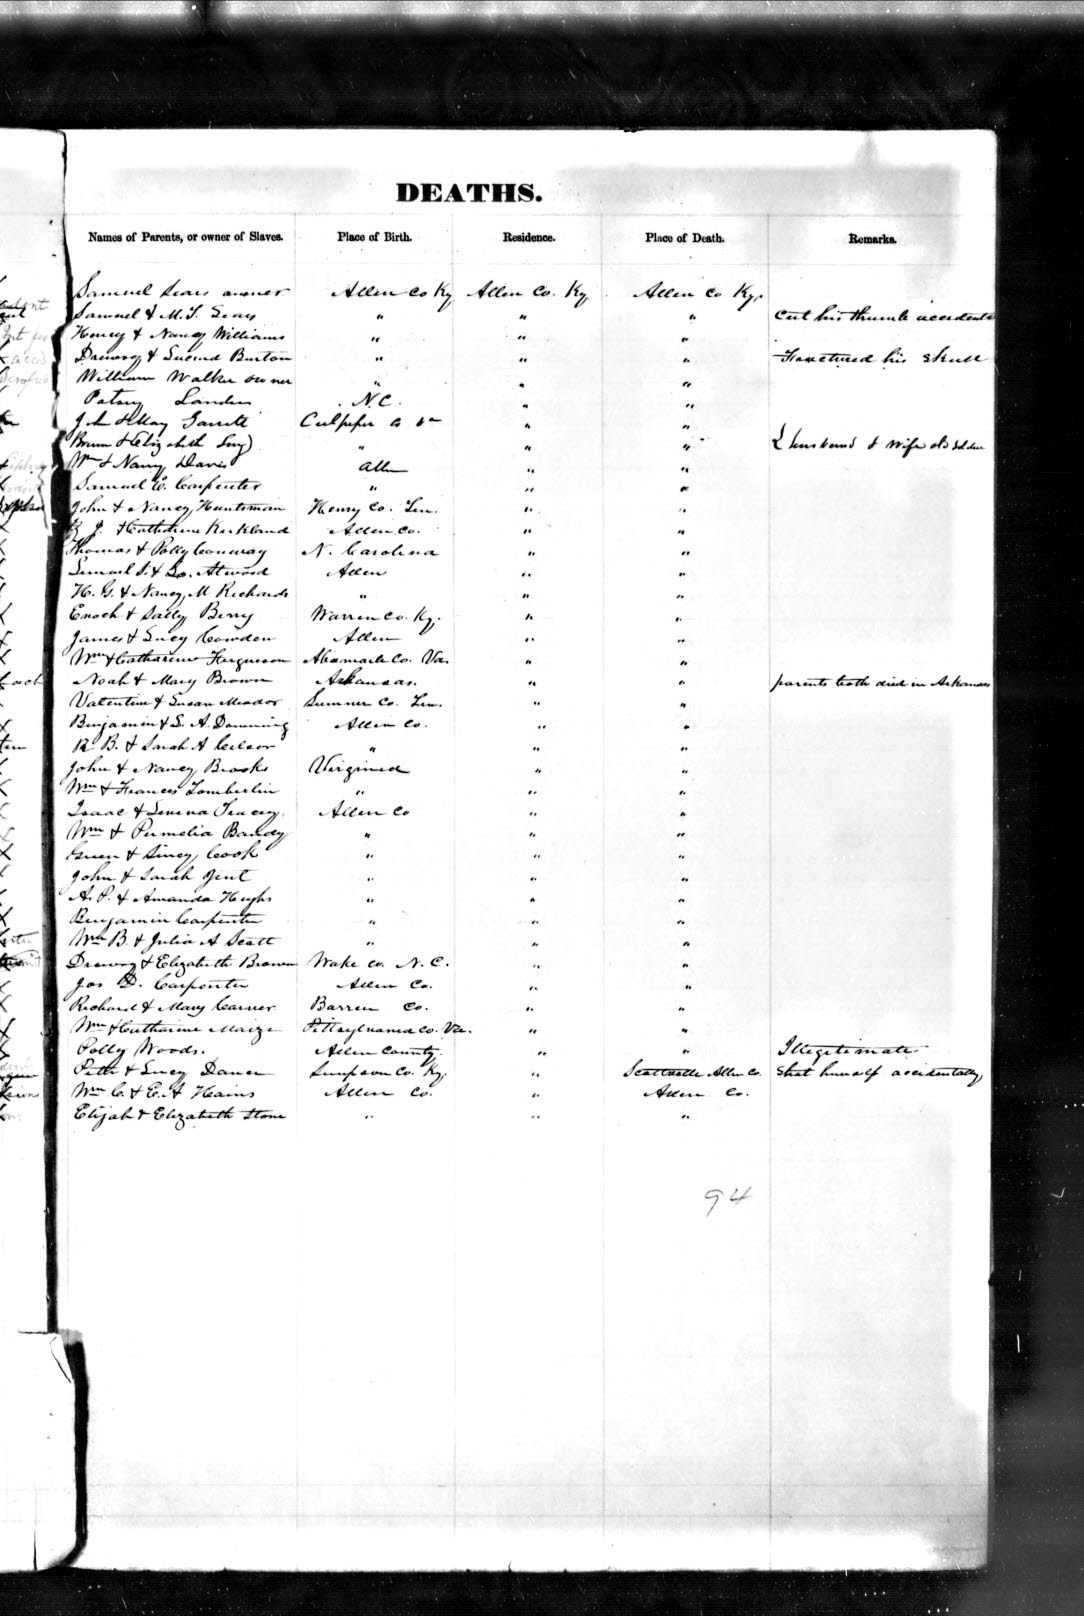 DEATHS.
Names of Parents, or owner of Slaves. Place of Birth. Residence. Place of Death. Remarks.
Samuel Sears owner Allen Co Ky Allen Co. Ky. Allen Co Ky.
Samuel & M. T. Sears " " " Cut his thumb accidentl
Henry & Nancy Williams " " "
Drewry & Burton " " " Fractured his skull
William Walker owner " " "
Patsy Landers N.C. " "
& May Garrett Culpeper Co Va " "
& Elizabeth " " " husband & wife
Wm & Nancy Davis Allen " "
Samuel E. Carpenter " " "
John & Nancy Huntsman Henry Co. Ten. " "
J. & Catharine Kirkland Allen Co. " "
Thomas & Polly Conway N. Carolina " "
Lemuel S. & Atwood Allen " "
H. G. & Nancy M Richards " " "
Enoch & Sally Berry Warren Co. Ky. " "
James & Lucy Cowden Allen " "
Wm & Catharine Furgusson Abixmarle Co. Va. " "
Noah & Mary Brown Arkansas. " " parents both died in Arkansas
Valentine & Susan Meador Sumner Co. Ten. " "
Benjamin & S. A. Downing Allen Co. " "
R. B. & Sarah A " " "
John & Nancy Brooks Virginia " "
Wm & Frances Tomberlin " " "
Isaac & Serena Tracey Allen Co " "
Wm & Permelia Bandy " " "
Green & Siney Cook " " "
John & Sarah Gent " " "
A. P. & Amanda Hughs " " "
Benjamin Carpenter " " "
Wm B. & Julia A Scott " " "
Drewry & Elizabeth Brown Wake Co. N. C. " "
Jos D. Carpenter Allen Co. " "
Richard & Mary Carver Barren Co. " "
Wm & Catharine Maize Pittsylvania Co. Va. " "
Polly Woods. Allen County. " " Illegitimate
& Lucy Dancer Simpson Co. Ky. " Scottsville Allen Co. Shot himself accidentally
Wm C. & E. A Hains Allen Co. " Allen Co.
Elijah & Elizabeth Stone " " "
94